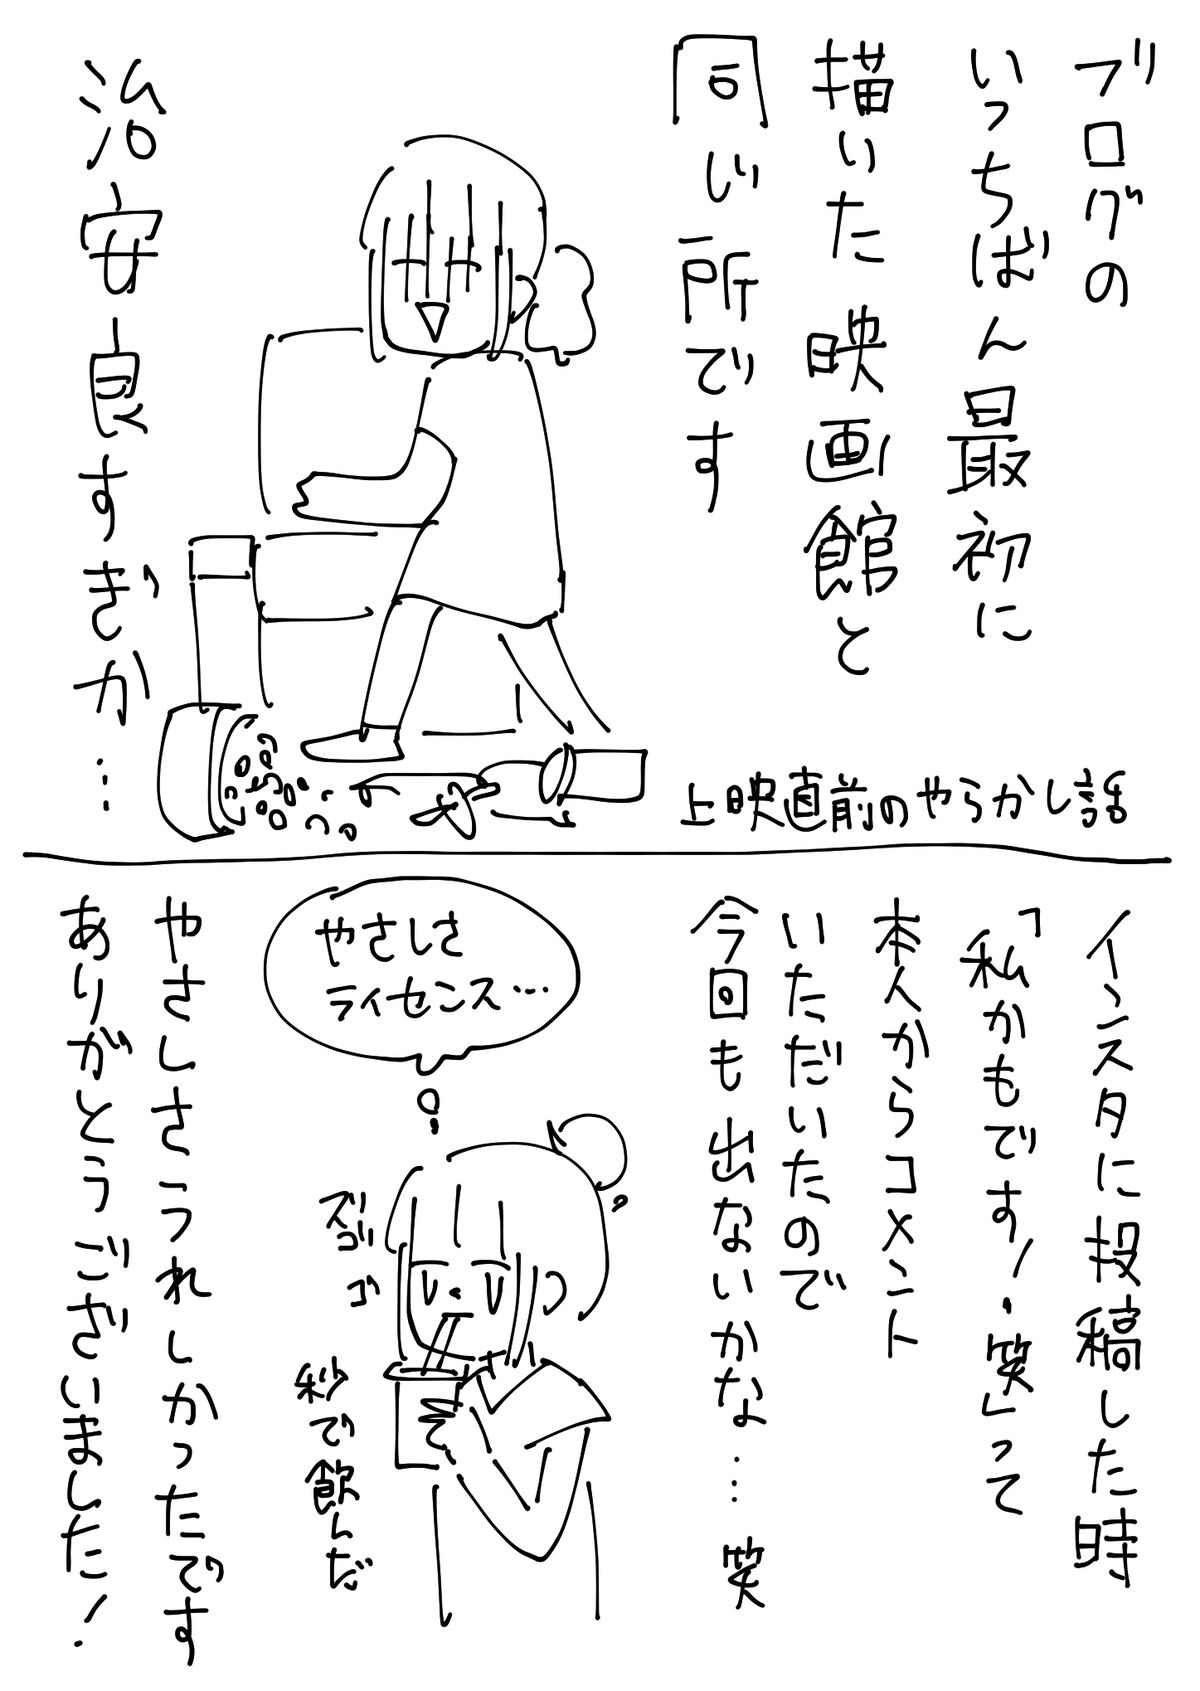 ブログの
いっちばん最初に
描いた映画館と
同じ所です
治安良すぎか…
上映直前のやらかし話
インスタに投稿した時
「私かもです!笑」って
本人からコメント
いただいたので
今回も出ないかな…笑
やさしさ
ライセンス…
ズゴゴゴ
秒で飲んだ
やさしさうれしかったです
ありがとうございました!